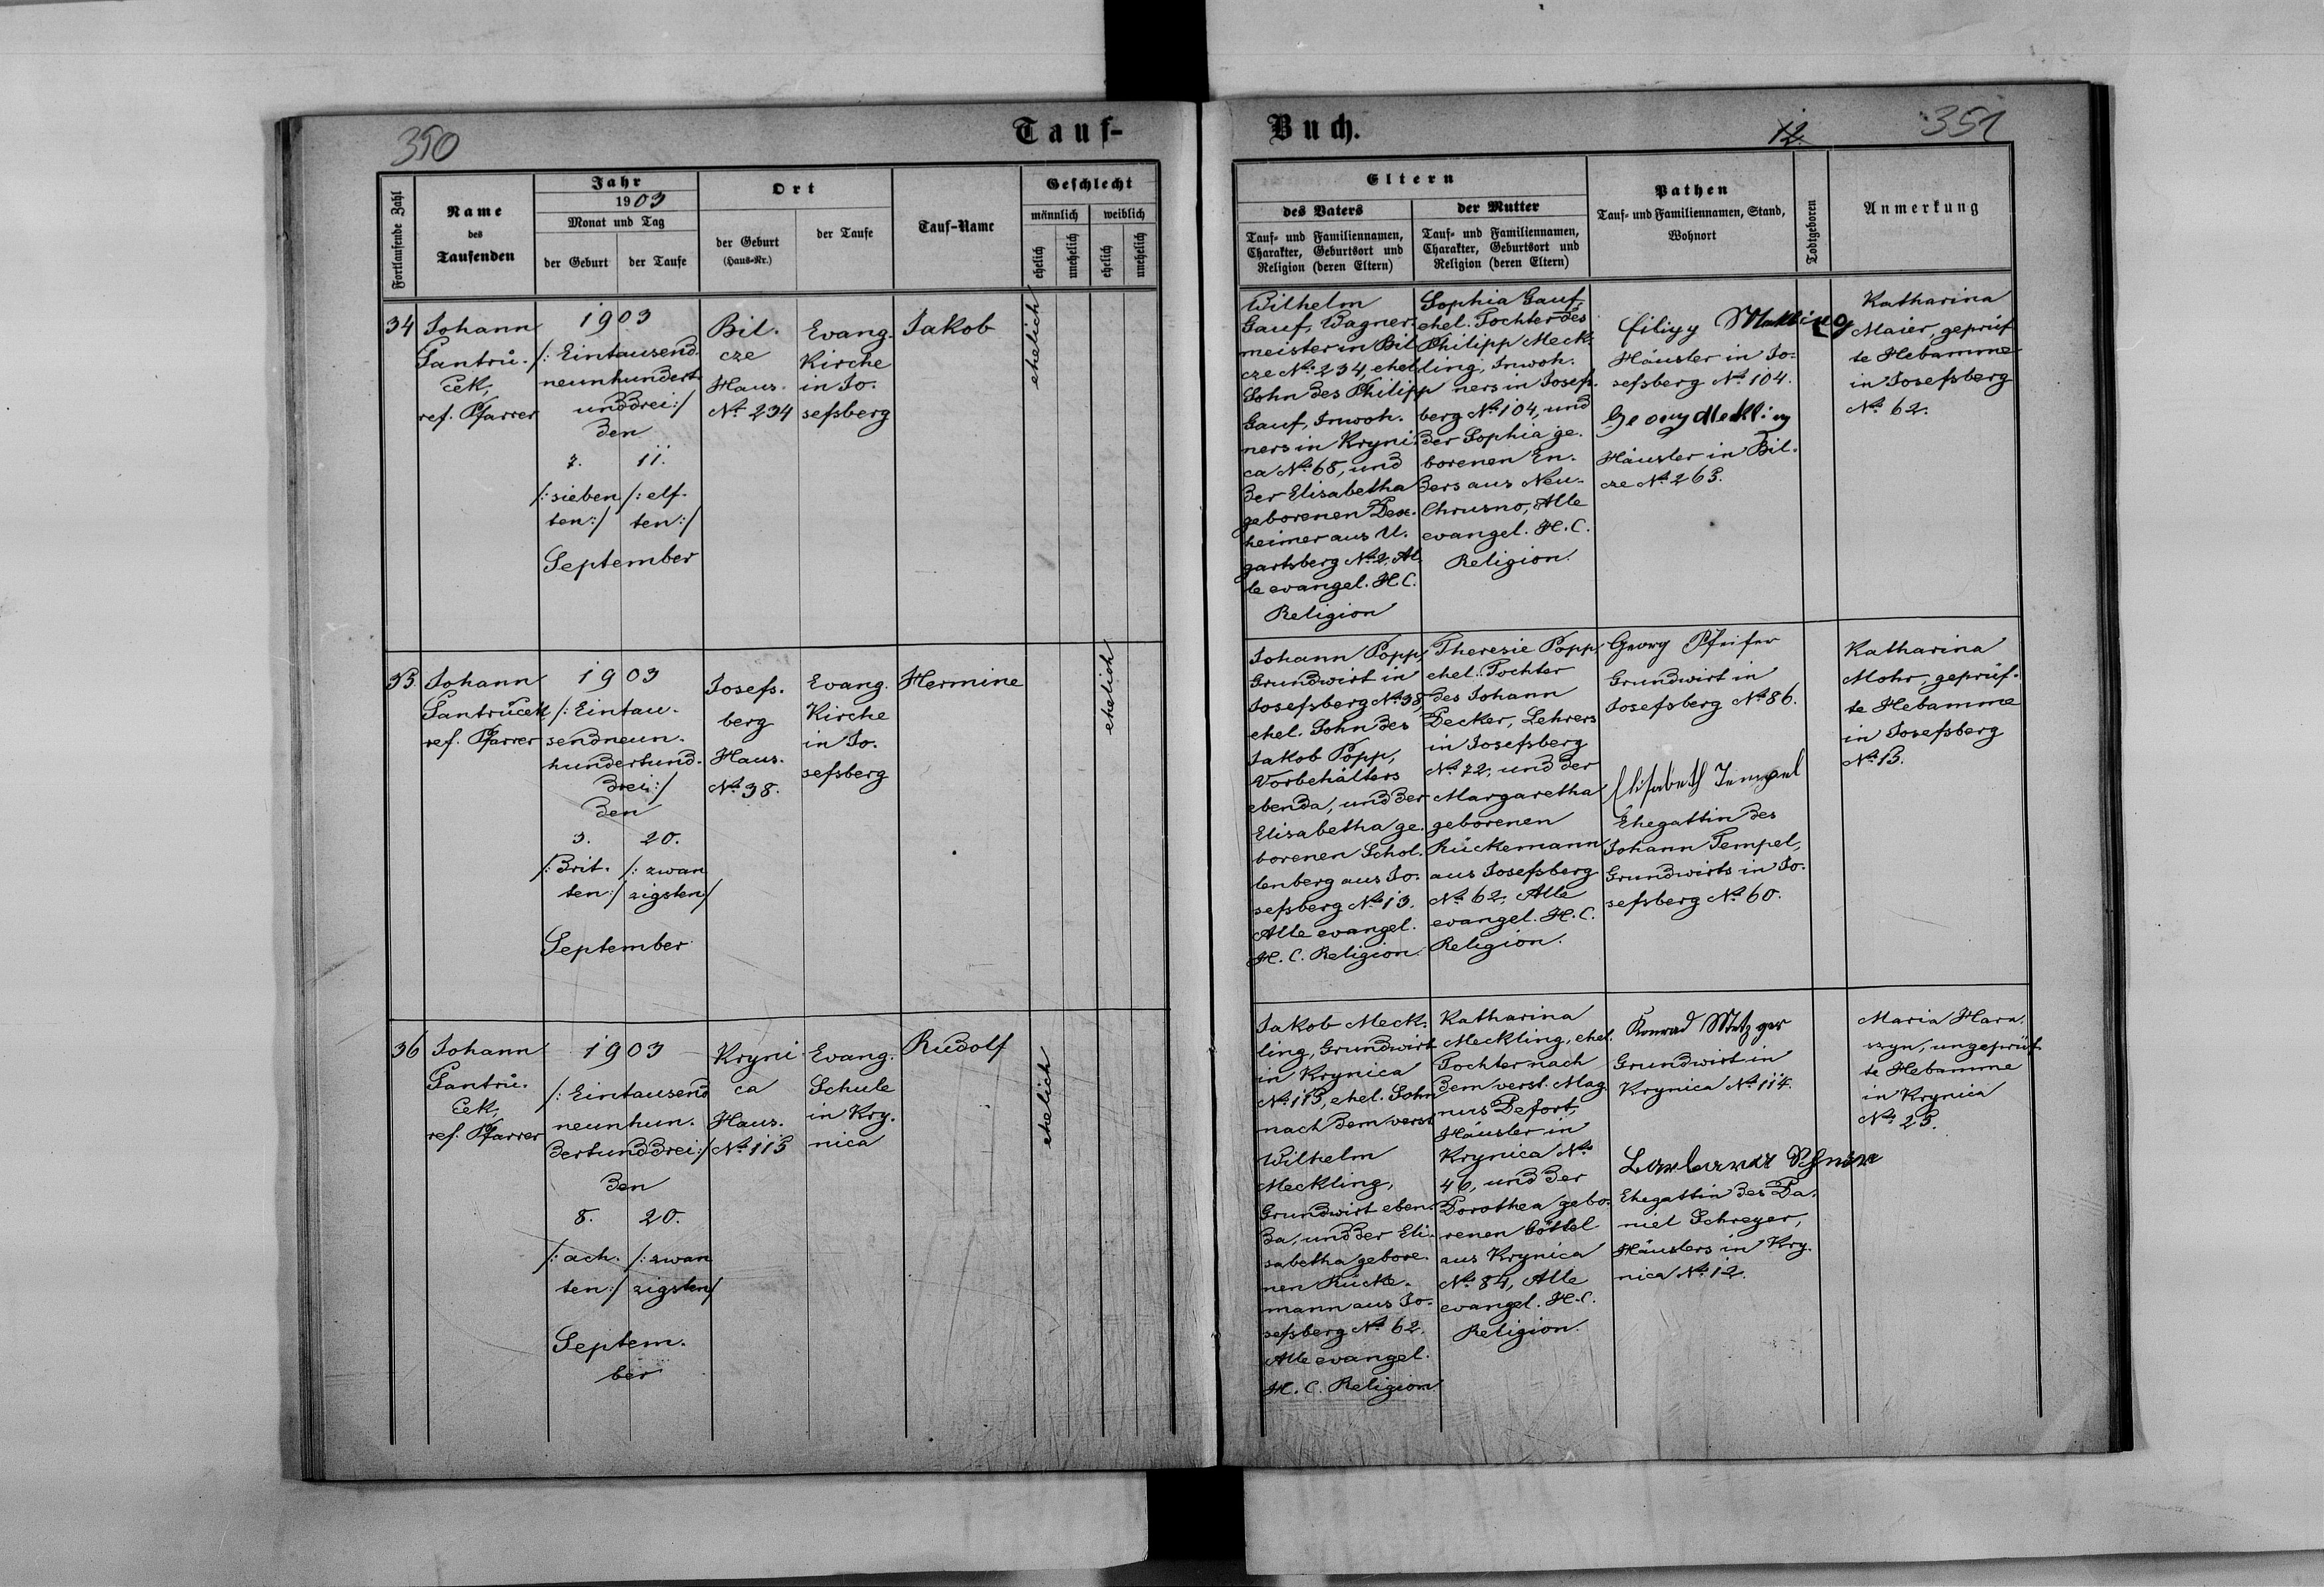 350
Tauf-
Fortlaufende Zahl
Name
des
Taufenden
Jahr
1903
Monat und Tag
der Geburt
der Taufe
Ort
der Geburt
(Haus-Nr.)
der Taufe
Tauf-Name
Geschlecht
männlich
weiblich
ehelich
unehelich
ehelich
unehelich
34
Johann
Jantrů-
ček,
ref. Pfarrer
1903
/: Eintausend-
neunhundert
unddrei :/
den
7. 11.
/: sieben /: elf-
ten :/ ten :/
September
Bil-
cze
Haus-
No. 234
Evang.
Kirche
in Jo-
sefsberg
Jakob
ehelich
35
Johann
Jantrůček
ref. Pfarrer
1903
/: Eintau-
sendneun-
hundertund-
drei :/
den
3. 20.
/: drit- /: zwan
ten :/ zigsten :/
September
Josefs-
berg
Haus-
No. 38.
Evang.
Kirche
in Jo-
sefsberg
Hermine
ehelich
36
Johann
Jantrů-
ček,
ref. Pfarrer
1903
/: Eintausend
neunhun-
dertunddrei :/
den
8. 20.
/: ach- /: zwan
ten :/ zigsten :/
Septem-
ber
Kryni
ca
Haus-
No. 115
Evang.
Schule
in Kry-
nica
Rudolf
ehelich
Buch.
12.
351
Eltern
des Vaters
Tauf- und Familiennamen,
Charakter, Geburtsort und
Religion (deren Eltern)
der Mutter
Tauf- und Familiennamen,
Charakter, Geburtsort und
Religion (deren Eltern)
Pathen
Tauf- und Familiennamen, Stand,
Wohnort
Todtgeboren
Anmerkung
Wilhelm
Gauf, Wagner-
meister in Bil
cze No. 234, ehel.
Sohn des Philipp
Gauf, Inwoh-
ners in Kryni-
ca No. 68, und
der Elisabetha
geborenen Dex-
heimer aus U-
gartsberg No. 2, Al-
le evangel. H.C.
Religion
Sophia Gauf,
ehel. Tochter des
Philipp Meck-
ling, Inwoh-
ners in Josefs-
berg No. 104, und
der Sophia ge-
borenen En-
ders aus Neu-
Chrusno, Alle
evangel. H.C.
Religion.
filipp Mekling
Häusler in Jo-
sefsberg No. 104.
Georg Mekling
Häusler in Bil-
cze No. 265.
Katharina
Maier, geprüf
te Hebamme
in Josefsberg
No. 62.
Johann Popp,
Grundwirt in
Josefsberg No. 38,
ehel. Sohn des
Jakob Popp,
Vorbehälters
ebenda, und der
Elisabetha ge-
borenen Schol-
lenberg aus Jo-
sefsberg No. 13.
Alle evangel.
H.C. Religion.
Theresie Popp
ehel. Tochter
des Johann
Decker, Lehrers
in Josefsberg
No. 72, und der
Margaretha
geborenen
Rückemann
aus Josefsberg
No. 62, Alle
evangel. H.C.
Religion.
Georg Pfeifer
Grundwirt in
Josefsberg No. 86.
Elisabeth Tempel
Ehegattin des
Johann Tempel,
Grundwirts in Jo-
sefsberg No. 60.
Katharina
Mohr, geprüf-
te Hebamme
in Josefsberg
No. 15.
Jakob Meck-
ling, Grundwirt
in Krynica
No. 115, ehel. Sohn
nach dem verst
Wilhelm
Meckling,
Grundwirt eben-
da, und der Eli-
sabetha gebore-
nen Rücke-
mann aus Jo-
sefsberg No. 62.
Alle evangel.
H.C. Religion
Katharina
Meckling, ehel.
Tochter nach
dem verst. Mag
nus Defort,
Häusler in
Krynica No.
46, und der
Dorothea gebo-
renen Göttel
aus Krynica
No. 84, Alle
evangel. H.C.
Religion.
Konrad Metzger
Grundwirt in
Krynica No. 114.
Barbara
Ehegattin des Da-
niel Schreyer,
Häuslers in Kry-
nica No. 12.
Maria Hara-
szyn, ungeprüf-
te Hebamme
in Krynica
No. 25.